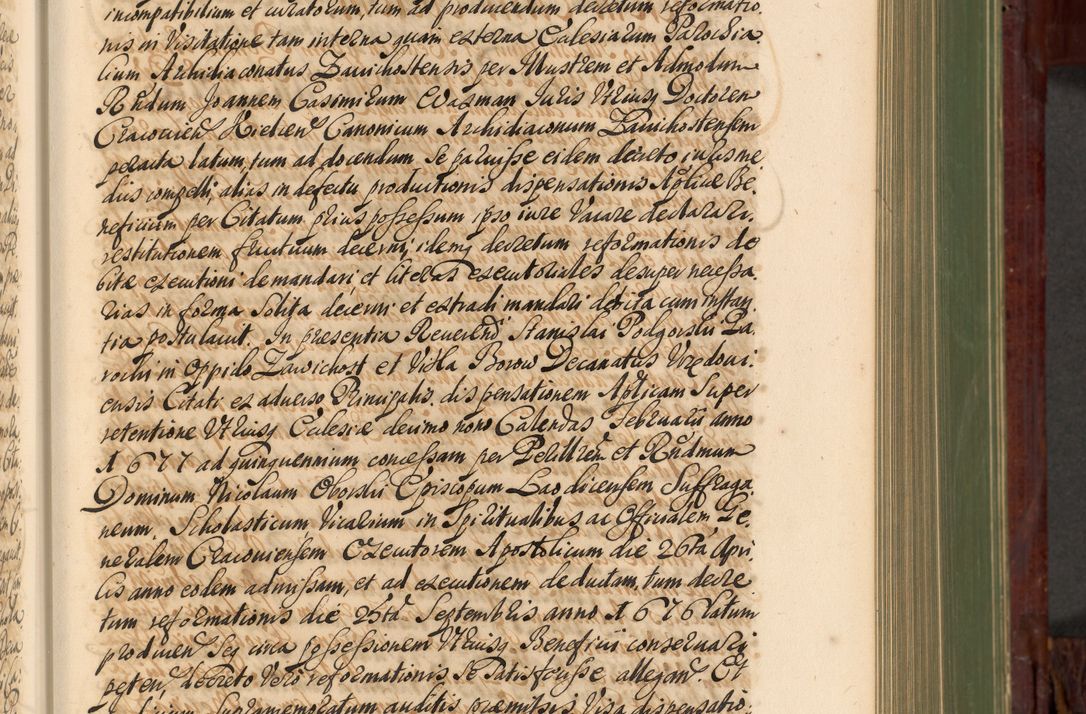 incompatibilium et curatorum, tum ad producendum decretum reformatio
nis in Visitatione tam interna quam externa Ecclesiarum Parochia
lium Archidiaconatus Zavichostensis per Illustrem et Admodum
Rndum Joannem Casimirum Waxman Juris Vtriusq Doctorem
Cracovien Kielcen Canonicum Archidiaconum Zavichostensem
peracta latum, tum ad docendum se paruisse eidem decreto iuris me
diis compelli, alias in defectu productionis dispensationis Aplicae Be,
neficium per Citatum prius possessum ipso iure Vacare declarari,
restitutionem fructuum decerni, idemq decretum reformationis de
bitae executioni demandari et literas executoriales desuper necessa
rias in forma solita decerni et extradi mandari debita cum instan
tia postulavit. In praesentia Reverendi Stanislai Podgorski Pa,
rochi in Oppido Zawichost et Villa Borow Decanatus Vrzędovi,
ensis Citati ex adverso Principalis dispensationem Aplicam super
retentione Vtriusq Ecclesiae decimo nono Calendas Februarii anno
1677 ad quinquennium concessam per Perillrem et Rndmum
Dominum Nicolaum Oborski Episcopum Laodicensem Suffraga
neum, Scholasticum Vicarium in Spiritualibus ac Officialem Ge,
neralem Cracoviensem Executorem Apostolicum die 26ta Apri
lis anno eodem admissam, et ad executionem deductam, tum decre
tum reformationis die 25ta Septembris anno 1676 latum
producen Seq circa possessionem Vtriusq Beneficii conservari
peten, decreto Vero reformationis, se satisfecisse allegan. Et
Supramemoratum auditis praemissis Visa dispensatio,